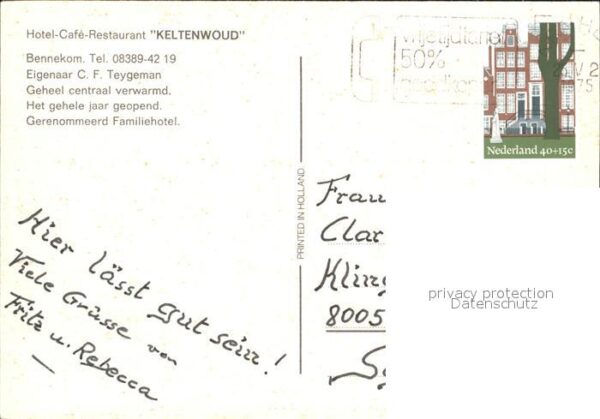 Hotel-Café-Restaurant "KELTENWOUD"
Bennekom. Tel. 08389-42 19
Eigenaar C. F. Teygeman
Geheel centraal verwarmd.
Het gehele jaar geopend.
Gerenommeerd Familiehotel.
50%
75
Nederland 40+15c
PRINTED IN HOLLAND
Hier lässt gut sein!
Viele Grüsse von
Fritz u. Rebecca
Frau
Clar
Kling
8005
privacy protection
Datenschutz